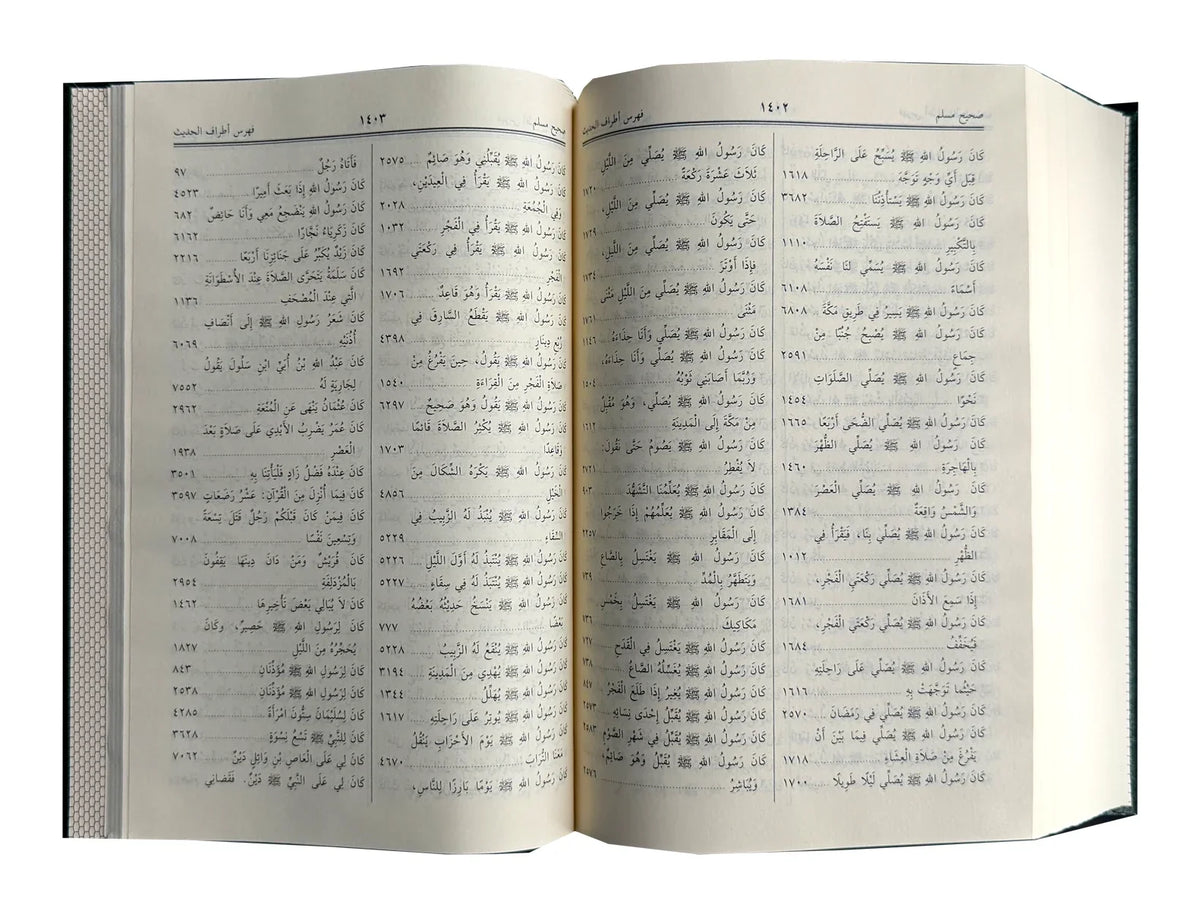 صحيح مسلم ١٤٠٢ فهرس أطراف الحديث
كَانَ رَسُولُ اللهِ ﷺ يُسَبِّحُ عَلَى الرَّاحِلَةِ
قِبَلَ أَيِّ وَجْهٍ تَوَجَّهَ ١٦١٨
كَانَ رَسُولُ اللهِ ﷺ يَسْتَأْذِنُنَا ٣٦٨٢
كَانَ رَسُولُ اللهِ ﷺ يَسْتَفْتِحُ الصَّلَاةَ
بِالتَّكْبِيرِ ١١١٠
كَانَ رَسُولُ اللهِ ﷺ يُسَمِّي لَنَا نَفْسَهُ
أَسْمَاءً ٦١٠٨
كَانَ رَسُولُ اللهِ ﷺ يَسِيرُ فِي طَرِيقِ مَكَّةَ ٦٨٠٨
كَانَ رَسُولُ اللهِ ﷺ يُصْبِحُ جُنُبًا مِنْ
جِمَاعٍ ٢٥٩١
كَانَ رَسُولُ اللهِ ﷺ يُصَلِّي الصَّلَوَاتِ
نَحْوًا ١٤٥٤
كَانَ رَسُولُ اللهِ ﷺ يُصَلِّي الضُّحَى أَرْبَعًا ١٦٦٥
كَانَ رَسُولُ اللهِ ﷺ يُصَلِّي الظُّهْرَ
بِالْهَاجِرَةِ ١٤٦٠
كَانَ رَسُولُ اللهِ ﷺ يُصَلِّي الْعَصْرَ
وَالشَّمْسُ وَاقِعَةٌ ١٣٨٤
كَانَ رَسُولُ اللهِ ﷺ يُصَلِّي بِنَا، فَيَقْرَأُ فِي
الظُّهْرِ ١٠١٢
كَانَ رَسُولُ اللهِ ﷺ يُصَلِّي رَكْعَتَيِ الْفَجْرِ،
إِذَا سَمِعَ الأَذَانَ ١٦٨١
كَانَ رَسُولُ اللهِ ﷺ يُصَلِّي رَكْعَتَيِ الْفَجْرِ،
فَيُخَفِّفُ ١٦٨٤
كَانَ رَسُولُ اللهِ ﷺ يُصَلِّي عَلَى رَاحِلَتِهِ
حَيْثُمَا تَوَجَّهَتْ بِهِ ١٦١٦
كَانَ رَسُولُ اللهِ ﷺ يُصَلِّي فِي رَمَضَانَ ٢٥٧٠
كَانَ رَسُولُ اللهِ ﷺ يُصَلِّي فِيمَا بَيْنَ أَنْ
يَفْرُغَ مِنْ صَلَاةِ الْعِشَاءِ ١٧١٨
كَانَ رَسُولُ اللهِ ﷺ يُصَلِّي لَيْلًا طَوِيلًا ١٧٠٠
كَانَ رَسُولُ اللهِ ﷺ يُصَلِّي مِنَ اللَّيْلِ
ثَلَاثَ عَشْرَةَ رَكْعَةً ١٧٢٠
كَانَ رَسُولُ اللهِ ﷺ يُصَلِّي مِنَ اللَّيْلِ،
حَتَّى يَكُونَ ١٧٢٩
كَانَ رَسُولُ اللهِ ﷺ يُصَلِّي مِنَ اللَّيْلِ،
فَإِذَا أَوْتَرَ ١٧٣٤
كَانَ رَسُولُ اللهِ ﷺ يُصَلِّي مِنَ اللَّيْلِ مَثْنَى
مَثْنَى ١٧٦١
كَانَ رَسُولُ اللهِ ﷺ يُصَلِّي وَأَنَا حِذَاءَهُ ١١٤٦
كَانَ رَسُولُ اللهِ ﷺ يُصَلِّي وَأَنَا حِذَاءَهُ،
وَرُبَّمَا أَصَابَنِي ثَوْبُهُ ١٥٠٤
كَانَ رَسُولُ اللهِ ﷺ يُصَلِّي، وَهُوَ مُقْبِلٌ
مِنْ مَكَّةَ إِلَى الْمَدِينَةِ ١٦١٢
كَانَ رَسُولُ اللهِ ﷺ يَصُومُ حَتَّى نَقُولَ:
لَا يُفْطِرُ ٢٧٢١
كَانَ رَسُولُ اللهِ ﷺ يُعَلِّمُنَا التَّشَهُّدَ ٩٠٣
كَانَ رَسُولُ اللهِ ﷺ يُعَلِّمُهُمْ إِذَا خَرَجُوا
إِلَى الْمَقَابِرِ ٢٢٥٧
كَانَ رَسُولُ اللهِ ﷺ يَغْتَسِلُ بِالصَّاعِ
وَيَتَطَهَّرُ بِالْمُدِّ ٧٣٩
كَانَ رَسُولُ اللهِ ﷺ يَغْتَسِلُ بِخَمْسِ
مَكَاكِيكَ ٧٣٦
كَانَ رَسُولُ اللهِ ﷺ يَغْتَسِلُ فِي الْقَدَحِ ٧٢٧
كَانَ رَسُولُ اللهِ ﷺ يُغَسِّلُهُ الصَّاعُ ٧٣٨
كَانَ رَسُولُ اللهِ ﷺ يُغِيرُ إِذَا طَلَعَ الْفَجْرُ ٨٤٧
كَانَ رَسُولُ اللهِ ﷺ يُقَبِّلُ إِحْدَى نِسَائِهِ ٢٥٧٣
كَانَ رَسُولُ اللهِ ﷺ يُقَبِّلُ فِي شَهْرِ الصَّوْمِ ٢٥٨٣
كَانَ رَسُولُ اللهِ ﷺ يُقَبِّلُ وَهُوَ صَائِمٌ،
وَيُبَاشِرُ ٢٥٧٦
صحيح مسلم ١٤٠٣ فهرس أطراف الحديث
كَانَ رَسُولُ اللهِ ﷺ يُقَبِّلُنِي وَهُوَ صَائِمٌ ٢٥٧٥
كَانَ رَسُولُ اللهِ ﷺ يَقْرَأُ فِي الْعِيدَيْنِ،
وَفِي الْجُمُعَةِ ٢٠٢٨
كَانَ رَسُولُ اللهِ ﷺ يَقْرَأُ فِي الْفَجْرِ ١٠٣٢
كَانَ رَسُولُ اللهِ ﷺ يَقْرَأُ فِي رَكْعَتَيِ
الْفَجْرِ ١٦٩٢
كَانَ رَسُولُ اللهِ ﷺ يَقْرَأُ وَهُوَ قَاعِدٌ ١٧٠٦
كَانَ رَسُولُ اللهِ ﷺ يَقْطَعُ السَّارِقَ فِي
رُبْعِ دِينَارٍ ٤٣٩٨
كَانَ رَسُولُ اللهِ ﷺ يَقُولُ، حِينَ يَفْرُغُ مِنْ
صَلَاةِ الْفَجْرِ مِنَ الْقِرَاءَةِ ١٥٤٠
كَانَ رَسُولُ اللهِ ﷺ يَقُولُ وَهُوَ صَحِيحٌ ٦٢٩٧
كَانَ رَسُولُ اللهِ ﷺ يُكْثِرُ الصَّلَاةَ قَائِمًا
وَقَاعِدًا ١٧٠٣
كَانَ رَسُولُ اللهِ ﷺ يَكْرَهُ الشِّكَالَ مِنَ
الْخَيْلِ ٤٨٥٦
كَانَ رَسُولُ اللهِ ﷺ يُنْبَذُ لَهُ الزَّبِيبُ فِي
السِّقَاءِ ٥٢٢٩
كَانَ رَسُولُ اللهِ ﷺ يُنْتَبَذُ لَهُ أَوَّلَ اللَّيْلِ ٥٢٢٦
كَانَ رَسُولُ اللهِ ﷺ يُنْتَبَذُ لَهُ فِي سِقَاءٍ ٥٢٢٧
كَانَ رَسُولُ اللهِ ﷺ يَنْسَخُ حَدِيثُهُ بَعْضُهُ
بَعْضًا ٧٧٧
كَانَ رَسُولُ اللهِ ﷺ يُنْقَعُ لَهُ الزَّبِيبُ ٥٢٢٨
كَانَ رَسُولُ اللهِ ﷺ يُهْدِي مِنَ الْمَدِينَةِ ٣١٩٤
كَانَ رَسُولُ اللهِ ﷺ يُهَلِّلُ ١٣٤٤
كَانَ رَسُولُ اللهِ ﷺ يُوتِرُ عَلَى رَاحِلَتِهِ ١٦١٧
كَانَ رَسُولُ اللهِ ﷺ يَوْمَ الأَحْزَابِ يَنْقُلُ
مَعَنَا التُّرَابَ ٤٦٧٠
كَانَ رَسُولُ اللهِ ﷺ يَوْمًا بَارِزًا لِلنَّاسِ،
فَأَتَاهُ رَجُلٌ ٩٧
كَانَ رَسُولُ اللهِ إِذَا بَعَثَ أَمِيرًا ٤٥٢٣
كَانَ رَسُولُ اللهِ يَنْضَجِعُ مَعِي وَأَنَا حَائِضٌ ٦٨٢
كَانَ زَكَرِيَّاءُ نَجَّارًا ٦١٦٢
كَانَ زَيْدٌ يُكَبِّرُ عَلَى جَنَائِزِنَا أَرْبَعًا ٢٢١٦
كَانَ سَلَمَةُ يَتَحَرَّى الصَّلَاةَ عِنْدَ الأُسْطُوَانَةِ
الَّتِي عِنْدَ الْمُصْحَفِ ١١٣٦
كَانَ شَعَرُ رَسُولِ اللهِ ﷺ إِلَى أَنْصَافِ
أُذُنَيْهِ ٦٠٦٩
كَانَ عَبْدُ اللهِ بْنُ أُبَيِّ ابْنِ سَلُولَ يَقُولُ
لِجَارِيَةٍ لَهُ ٧٥٥٢
كَانَ عُثْمَانُ يَنْهَى عَنِ الْمُتْعَةِ ٢٩٦٢
كَانَ عُمَرُ يَضْرِبُ الأَيْدِي عَلَى صَلَاةٍ بَعْدَ
الْعَصْرِ ١٩٣٨
كَانَ عِنْدَهُ فَضْلُ زَادٍ فَلْيَأْتِنَا بِهِ ٣٥٠١
كَانَ فِيمَا أُنْزِلَ مِنَ الْقُرْآنِ: عَشْرُ رَضَعَاتٍ ٣٥٩٧
كَانَ فِيمَنْ كَانَ قَبْلَكُمْ رَجُلٌ قَتَلَ تِسْعَةً
وَتِسْعِينَ نَفْسًا ٧٠٠٨
كَانَ قُرَيْشٌ وَمَنْ دَانَ دِينَهَا يَقِفُونَ
بِالْمُزْدَلِفَةِ ٢٩٥٤
كَانَ لَا يُبَالِي بَعْضَ تَأْخِيرِهَا ١٤٦٢
كَانَ لِرَسُولِ اللهِ ﷺ حَصِيرٌ، وَكَانَ
يُحَجِّرُهُ مِنَ اللَّيْلِ ١٨٢٧
كَانَ لِرَسُولِ اللهِ ﷺ مُؤَذِّنَانِ ٨٤٣
كَانَ لِرَسُولِ اللهِ ﷺ مُؤَذِّنَانِ ٢٥٣٨
كَانَ لِسُلَيْمَانَ سِتُّونَ امْرَأَةً ٤٢٨٥
كَانَ لِلنَّبِيِّ ﷺ تِسْعُ نِسْوَةٍ ٣٦٢٨
كَانَ لِي عَلَى الْعَاصِ بْنِ وَائِلٍ دَيْنٌ ٧٠٦٢
كَانَ لِي عَلَى النَّبِيِّ ﷺ دَيْنٌ. فَقَضَانِي